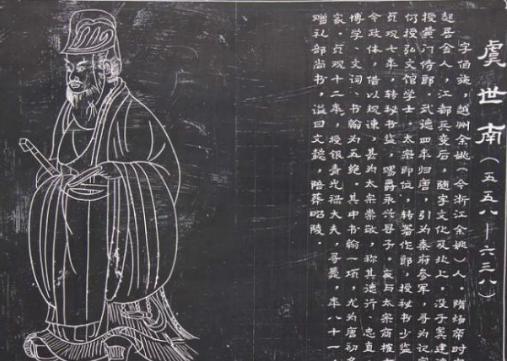 虞世南(五五八—六三八)
字伯施,越州余姚(今浙江余姚)人,隋炀帝时
起居舍人,江都兵变后,随宇文化及北上,没于窦建
授黄门侍郎,武德四年归唐,引为秦府参军,寻为记
何授弘文馆学士,太宗即位,转著作郎,授秘书少监
贞观七年,转秘书监,赐爵永兴县子,
令政体,借以规谏,甚为太宗崇敬,称其德行、忠直
博学、文词、书翰为五绝。其中书翰一项,尤为唐初
家,贞观十二年,授银青光禄大夫,寻薨,年八十一
赠礼部尚书,谥曰文懿,陪葬昭陵。